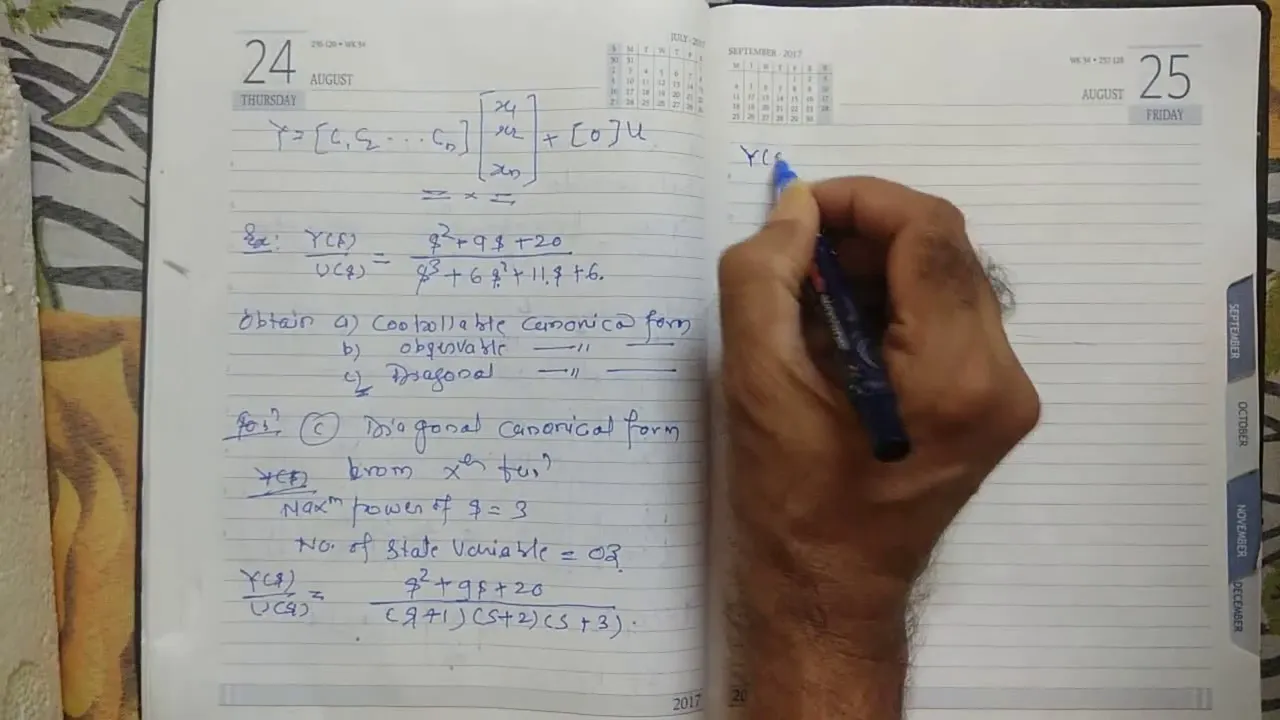 24
236-129 • WK 34
AUGUST
THURSDAY
JULY - 2017
Y = [C₁ C₂ ... Cₙ] [x₁ x₂ xₙ] + [0] U
= x =
Ex: Y(s)/U(s) = s²+9s+20 / s³+6s²+11s+6.
Obtain a) Controllable canonical form
b) observable —〃 —
c) Diagonal —〃 —
Solⁿ (c) Diagonal canonical form
Y(s) from xᵉʳ funⁿ
Maxᵐ power of s = 3
No. of State Variable = 03
Y(s)/U(s) = s²+9s+20 / (s+1)(s+2)(s+3).
2017
SEPTEMBER - 2017
AUGUST
25
FRIDAY
Y(s
20
SEPTEMBER
OCTOBER
NOVEMBER
DECEMBER